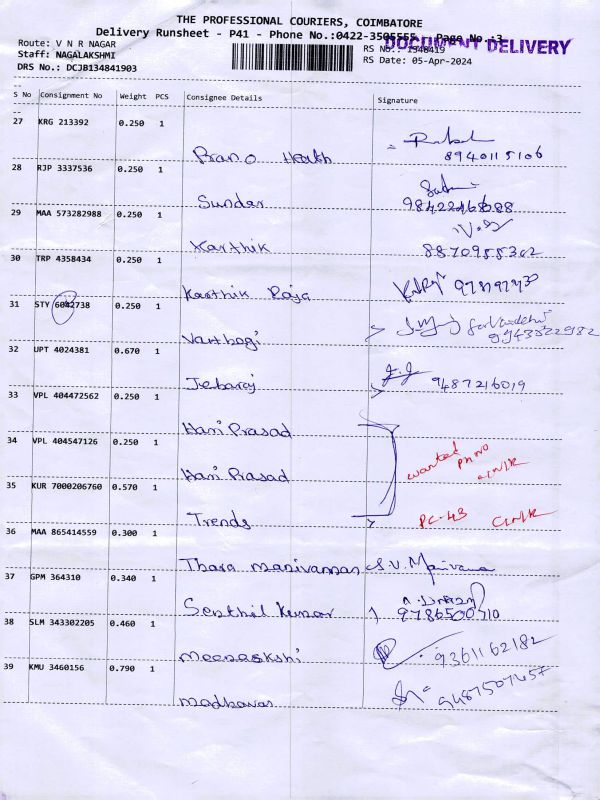 THE PROFESSIONAL COURIERS, COIMBATORE
Delivery Runsheet - P41 - Phone No.:0422-3505555 Page No.:3
DOCUMENT DELIVERY
Route: V N R NAGAR
RS No.: 1348419
Staff: NAGALAKSHMI
RS Date: 05-Apr-2024
DRS No.: DCJB134841903
S No Consignment No Weight PCS Consignee Details Signature
27 KRG 213392 0.250 1
Brano Health 8940115106
28 RJP 3337536 0.250 1
Sundar
29 MAA 573282988 0.250 1
Karthik 8870955362
30 TRP 4358434 0.250 1
Karthik Raja
31 STY 6042738 0.250 1
Varthagi
32 UPT 4024381 0.670 1
Jebaraj 9487216019
33 VPL 404472562 0.250 1
Hari Prasad
34 VPL 404547126 0.250 1
Hari Prasad wanted PH NO
35 KUR 7000206760 0.570 1
Trends PC-43
36 MAA 865414559 0.300 1
Thara manivannan
37 GPM 364310 0.340 1
Senthil Kumar 9786500710
38 SLM 343302205 0.460 1
meenaakshi 9361162182
39 KMU 3460156 0.790 1
madhavan 9487507457